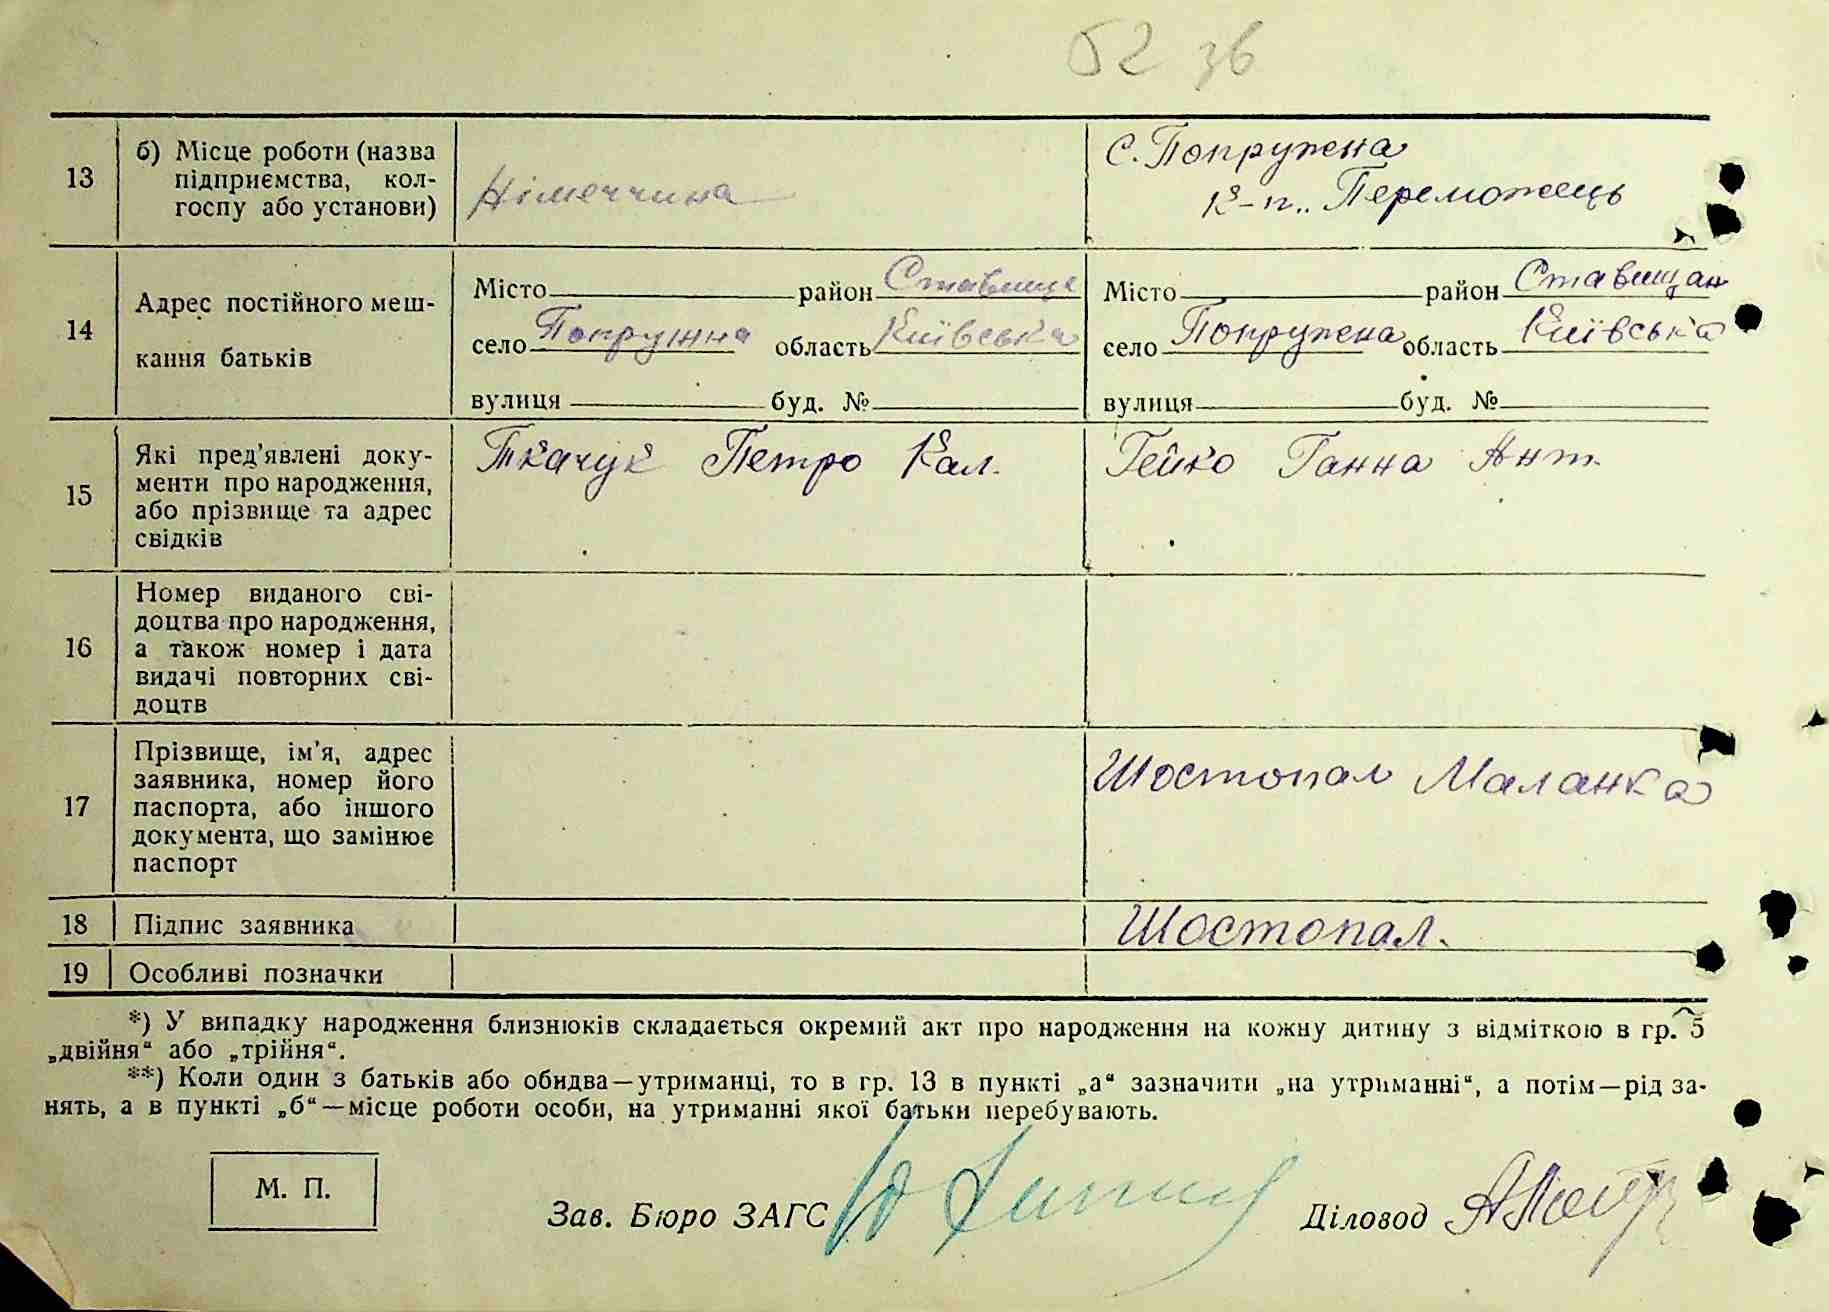 52 зв
13
б) Місце роботи (назва
підприємства, кол-
госпу або установи)
Німеччина
с. Попружена
к-п „Переможець
14
Адрес постійного меш-
кання батьків
Місто район Ставище
село Попружна область Київська
вулиця буд. №
Місто район Ставищан
село Попружена область Київська
вулиця буд. №
15
Які пред’явлені доку-
менти про народження,
або прізвище та адрес
свідків
Ткачук Петро Кал.
Гейко Ганна Ант.
16
Номер виданого сві-
доцтва про народження,
а також номер і дата
видачі повторних сві-
доцтв
17
Прізвище, ім’я, адрес
заявника, номер його
паспорта, або іншого
документа, що замінює
паспорт
Шостопал Маланка
18 Підпис заявника
Шостопал.
19 Особливі позначки
*) У випадку народження близнюків складається окремий акт про народження на кожну дитину з відміткою в гр. 5
„двійня“ або „трійня“.
**) Коли один з батьків або обидва—утриманці, то в гр. 13 в пункті „а“ зазначити „на утриманні“, а потім—рід за-
нять, а в пункті „б“—місце роботи особи, на утриманні якої батьки перебувають.
М. П.
Зав. Бюро ЗАГС
Діловод